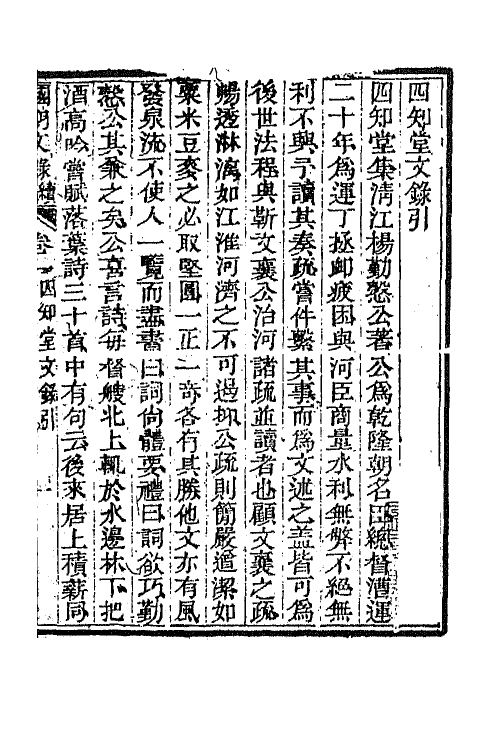 四知堂文錄引
四知堂集清江楊勤愨公著公爲乾隆朝名臣總督漕運
二十年爲運丁拯卹疲困與河臣商量水利無弊不絕無
利不興予讀其奏疏嘗件繫其事而爲文述之盖皆可爲
後世法程與靳文襄公治河諸疏並讀者也顧文襄之疏
暢透淋漓如江淮河濟之不可遏抑公疏則簡嚴遒潔如
粟米豆麥之必取堅圓一正一奇各有其勝他文亦有風
發泉流不使人一覽而盡書曰詞尚體要禮曰詞欲巧勤
愨公其兼之矣公喜言詩每督艘北上輒於水邊林下把
酒高吟嘗賦落葉詩三十首中有句云後來居上積薪同
國朝文錄續 卷一 四知堂文錄引 一